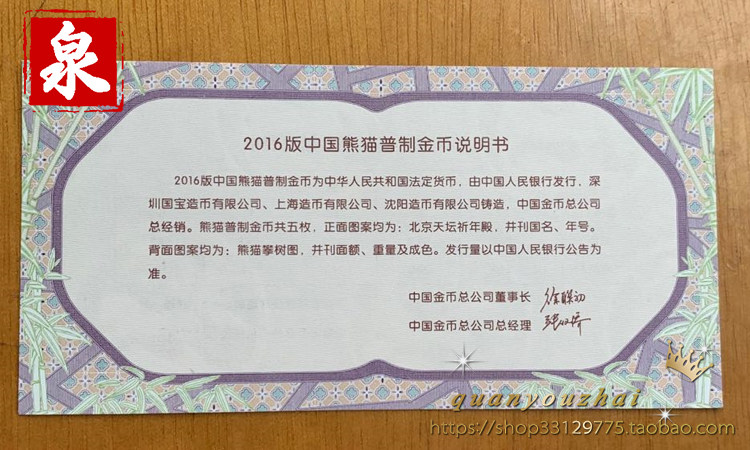 泉
2016版中国熊猫普制金币说明书
2016版中国熊猫普制金币为中华人民共和国法定货币，由中国人民银行发行，深
圳国宝造币有限公司、上海造币有限公司、沈阳造币有限公司铸造，中国金币总公司
总经销。熊猫普制金币共五枚，正面图案均为：北京天坛祈年殿，并刊国名、年号。
背面图案均为：熊猫攀树图，并刊面额、重量及成色。发行量以中国人民银行公告为
准。
中国金币总公司董事长
中国金币总公司总经理
quanyouzhai
https://shop33129775.taobao.com